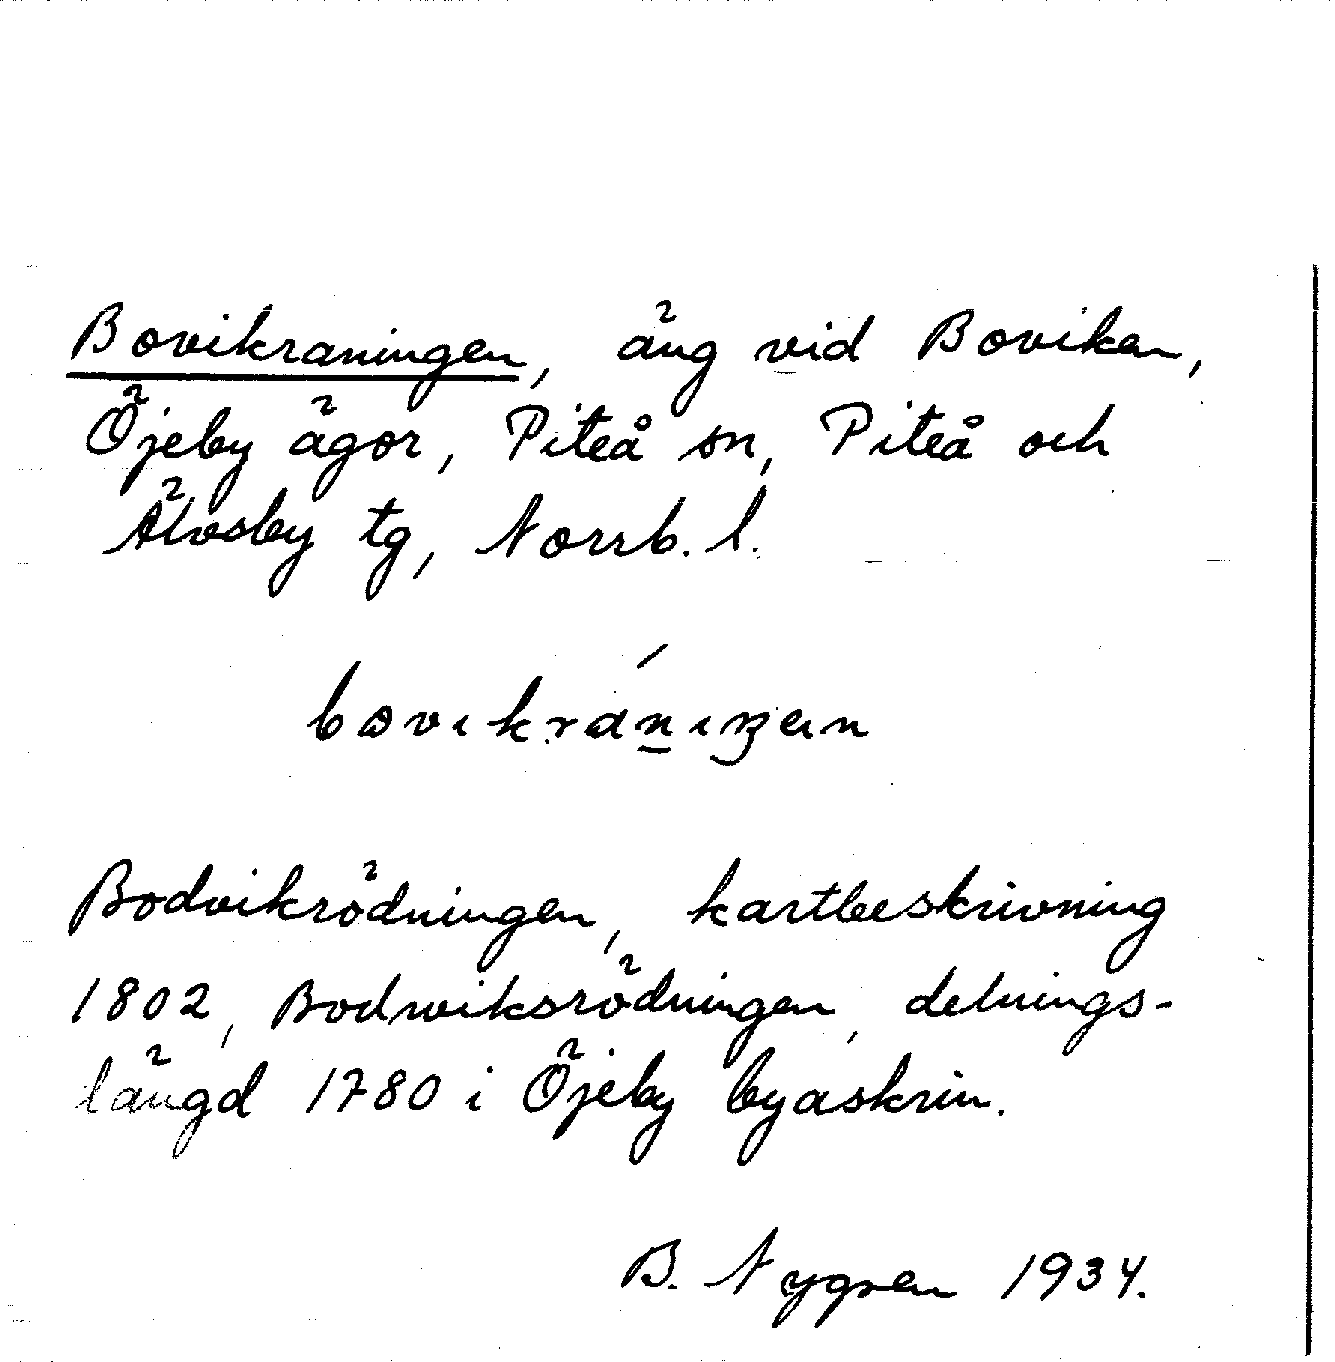 Bovikraningen, äng vid Boviken,
Öjeby ägor, Piteå sn, Piteå och
Älvsby tg, Norrb. l.
Bodvikrödningen, kartbeskrivning
1802, Bodwiksrödningen, delnings-
längd 1780 i Öjeby byaskrin.
B. Nygren 1934.